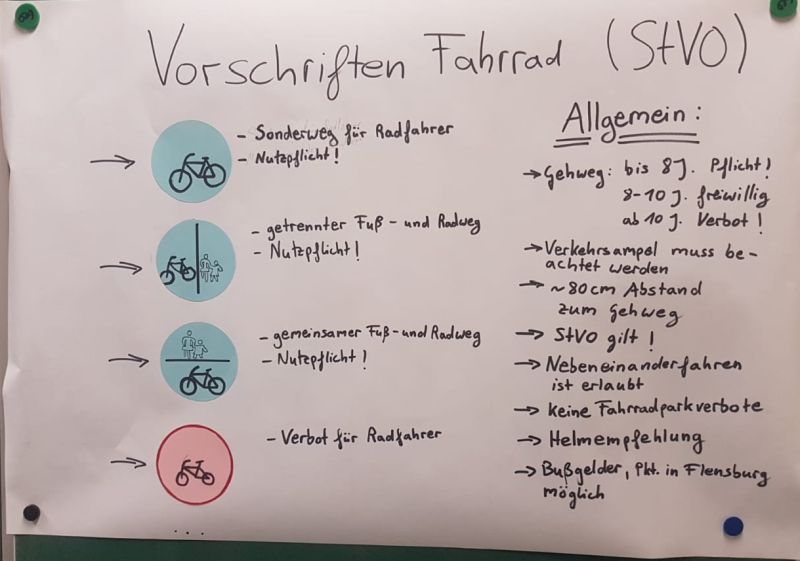 Vorschriften Fahrrad (StVO)
- Sonderweg für Radfahrer
- Nutzpflicht!
- getrennter Fuß- und Radweg
- Nutzpflicht!
- gemeinsamer Fuß- und Radweg
- Nutzpflicht!
- Verbot für Radfahrer
...
Allgemein:
→ Gehweg: bis 8 J. Pflicht!
8-10 J. freiwillig
ab 10 J. Verbot!
→ Verkehrsampel muss be-
achtet werden
→ ~80cm Abstand
zum Gehweg
→ StVO gilt!
→ Nebeneinanderfahren
ist erlaubt
→ keine Fahrradparkverbote
→ Helmempfehlung
→ Bußgelder, Pkt. in Flensburg
möglich